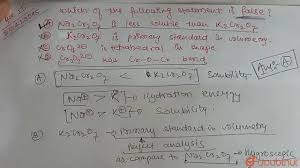 which of the following statement is false?
(A) Na2Cr2O7 is less soluble than K2Cr2O7
(B) K2Cr2O7 is primary standard in volumetry
(C) CrO4 2⊖ is tetrahedral in shape
(D) Cr2O7 2⊖ has Cr-O-Cr bond
Ans: A
(A) [Na2Cr2O7 < K2Cr2O7] Solubility
[Na⊕ > K⊕] → Hydration energy
Solubility
(B) K2Cr2O7 → Primary standard in volumetry
analysis
as compare to Na2Cr2O7 → Hygroscopic